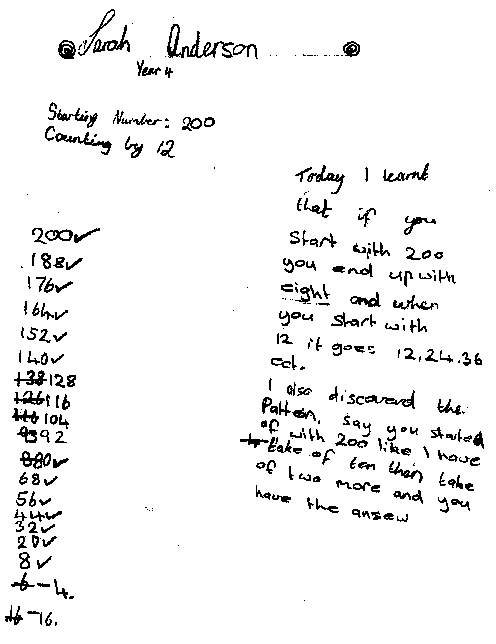 Sarah Anderson
Year 4
Starting Number: 200
Counting by 12
200✓
188✓
176✓
164✓
152✓
140✓
138 128
126 116
116 104
92
80✓
68✓
56✓
44✓
32✓
20✓
8✓
-4.
-16.
Today I learnt
that if you
Start with 200
you end up with
eight and when
you Start with
12 it goes 12,24.36
ect.
I also discovered the
Patten. Say you started
of with 200 like I have
take of ten then take
of two more and you
have the ansew